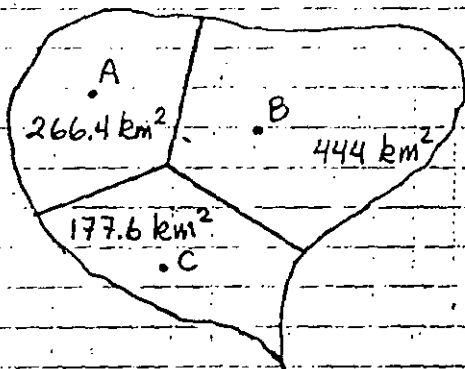 A
266.4 km²
B
444 km²
177.6 km²
C